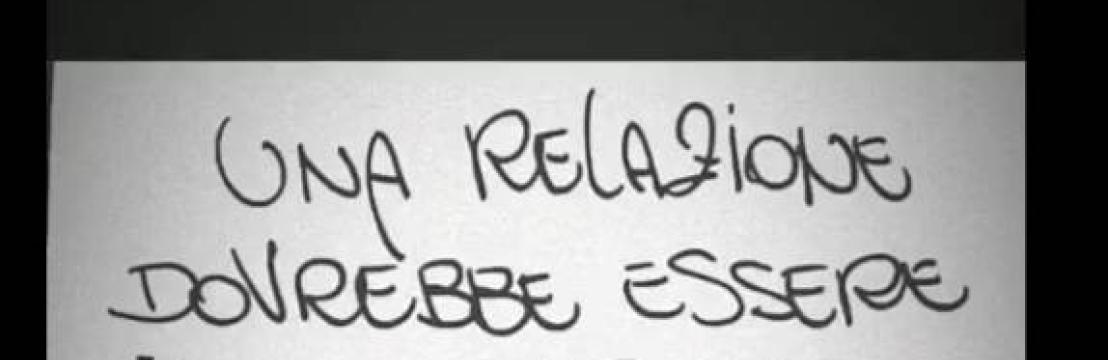 UNA RELAZIONE
DOVREBBE ESSERE